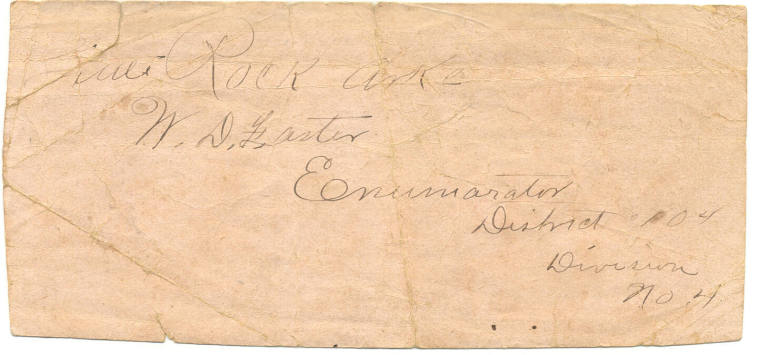 Rock Arks
W. D. Easter
Enumarator
District 04
Division
No. 4